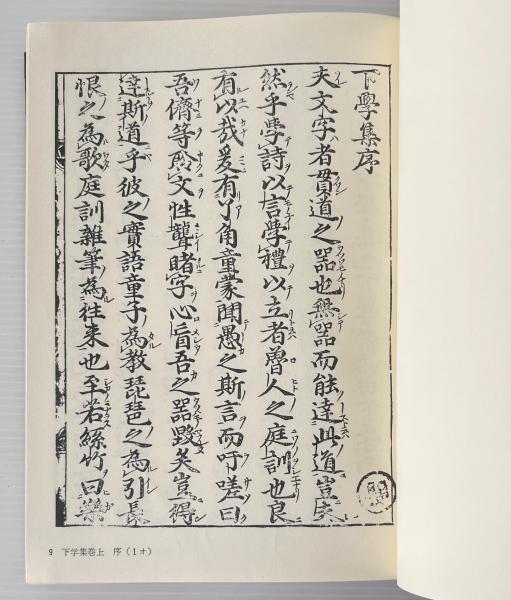 下學集序
夫文字者貫道之器也無器而能達此道豈夫
然乎學詩以言學禮以立者魯人之庭訓也良
有以哉爰有丫角童蒙聞愚之斯言而吁嗟曰
吾儕等聆文性聾睹字心盲吾之器毀矣豈得
達斯道乎彼之實語童子為教琵琶之為引長
恨之為歌庭訓雜筆為往来也至若絲竹曰樂
9 下学集巻上 序（1オ）